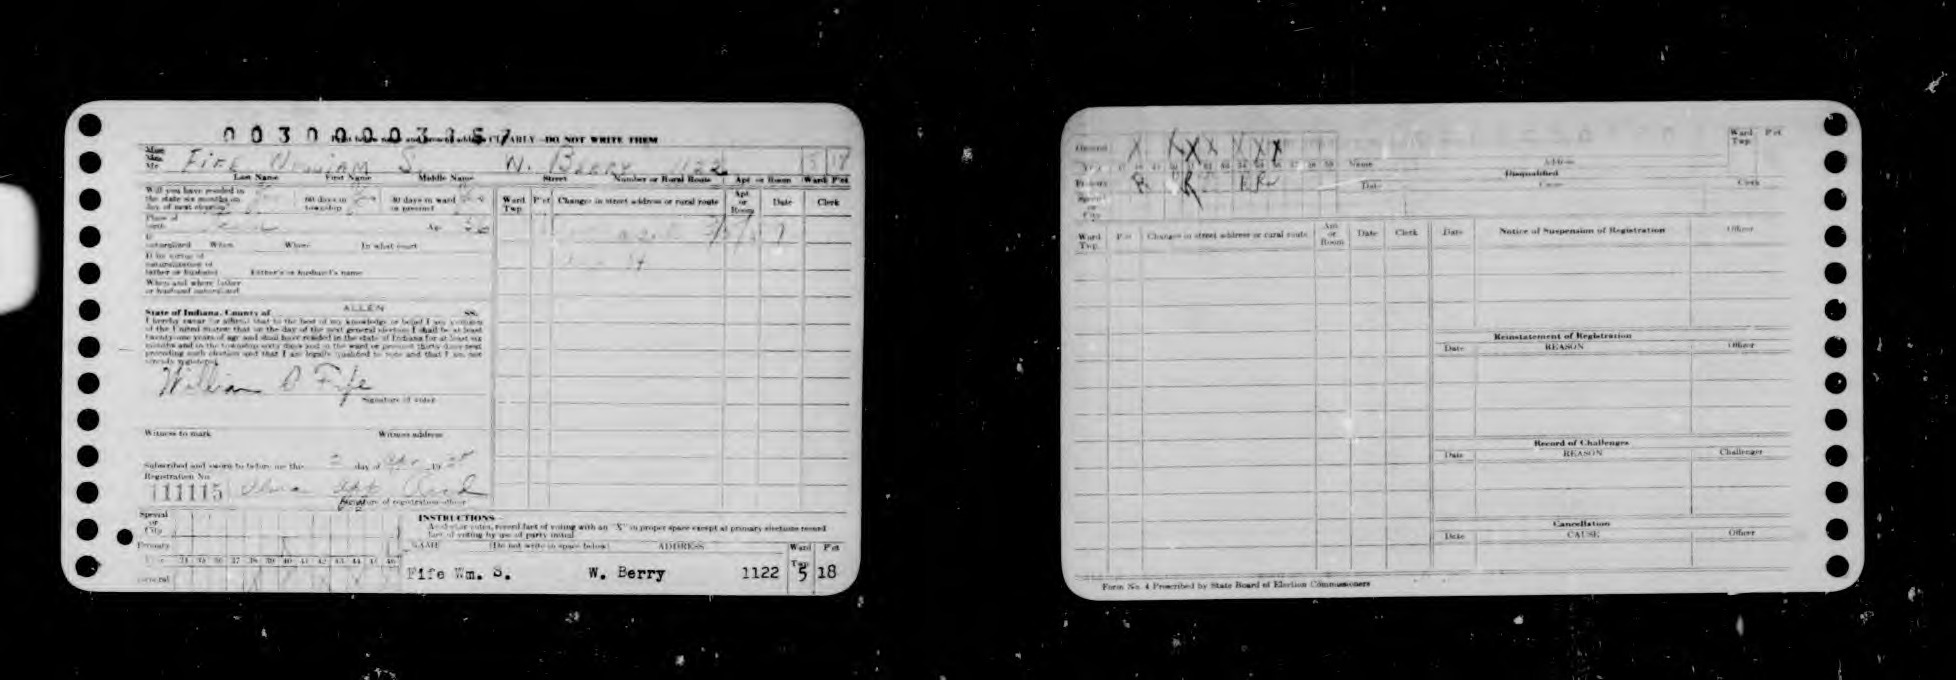 CLEARLY—DO NOT WRITE THEM
Miss
Mrs.
Mr. Fife William S. W. Berry 1122 5 18
Last Name First Name Middle Name Street Number or Rural Route Apt. or Room Ward P'ct
Will you have resided in
the state six months on
day of next election?
60 days in
township
30 days in ward
or precinct
Place of
birth
Age
If
naturalized When Where In what court
If by virtue of
naturalization of
father or husband Father's or husband's name
When and where father
or husband naturalized
State of Indiana, County of ALLEN SS.
I hereby swear (or affirm) that to the best of my knowledge or belief I am a citizen
of the United States; that on the day of the next general election I shall be at least
twenty-one years of age and shall have resided in the state of Indiana for at least six
months and in the township sixty days and in the ward or precinct thirty days next
preceding such election and that I am legally qualified to vote and that I am not
already registered.
William S Fife
Signature of voter
Witness to mark Witness address
Subscribed and sworn to before me this day of 19
Registration No.
111115
Signature of registration officer
Ward
Twp. P'ct Changes in street address or rural route Apt.
or
Room Date Clerk
Special
or
City
Primary
Year 34 35 36 37 38 39 40 41 42 43 44 45 46
General
INSTRUCTIONS
After voter votes, record fact of voting with an "X" in proper space except at primary elections record
fact of voting by use of party initial.
NAME (Do not write in space below) ADDRESS Ward
Twp. P'ct
Fife Wm. S. W. Berry 1122 5 18
General X X X X X X X
Year Name Address
Ward
Twp. P'ct
Primary R R R R
Special
or
City
Disqualified
Date Cause Clerk
Ward
Twp. P'ct Changes in street address or rural route Apt.
or
Room Date Clerk
Date Notice of Suspension of Registration Officer
Reinstatement of Registration
Date REASON Officer
Record of Challenges
Date REASON Challenger
Cancellation
Date CAUSE Officer
Form No. 4 Prescribed by State Board of Election Commissioners